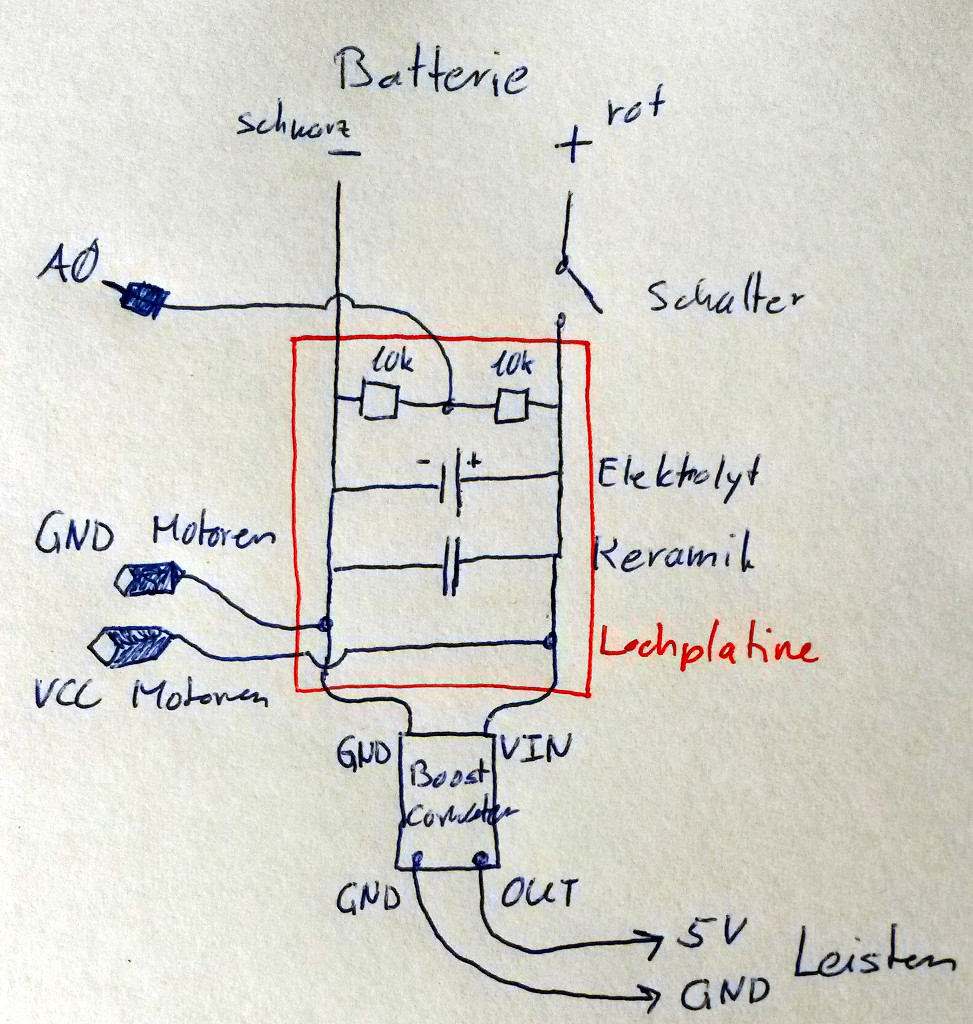 Batterie
schwarz
rot
-
+
AØ
Schalter
10k
10k
- +
Elektrolyt
GND Motoren
Keramik
Lochplatine
VCC Motoren
GND
VIN
Boost
Converter
GND
OUT
5V
Leisten
GND